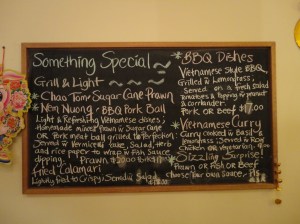 Something Special
Grill & Light
* Chao Tom Sugar Cane Prawn
* Nen Nuong: BBQ Pork Ball
Light & Refreshing Vietnamese dishes;
Homemade minced Prawn w Sugar Cane
OR Pork meat ball grilled to perfection;
Served w Vermicelli cake, Salad, herb
and rice paper to wrap & Fish Sauce
dipping. Prawn
Fried Calamari
Lightly fried to Crispy; Served w Salad
* BBQ Dishes
Vietnamese Style BBQ
Grilled w Lemongrass;
Served on a fresh salad
tomatoes & topping w peanut
& corriander.
Pork OR Beef $17.00
* Vietnamese Curry
Curry cooked w Basil &
Lemongrass; Served w Rice
Chicken OR Vegetarian
* Sizzling Surprise!
Prawn OR Fish OR Beef
Choose Your own Sauce.